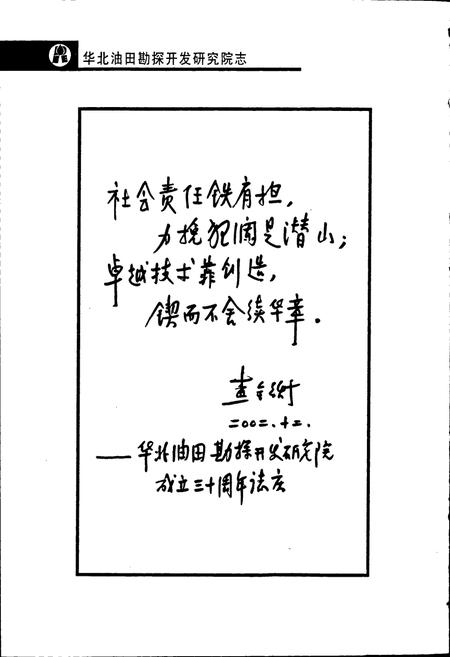 华北油田勘探开发研究院志
社会责任铁有担,
力挽狂澜是潜山;
卓越技术靠创造,
锲而不舍续华章.
查全衡
二00二.十二.
——华北油田勘探开发研究院
成立三十周年志庆